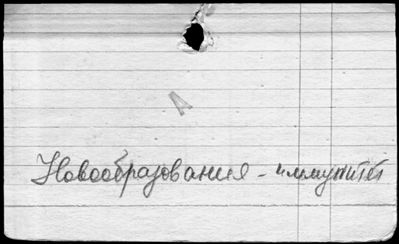 А
Новообразования - иммунитет